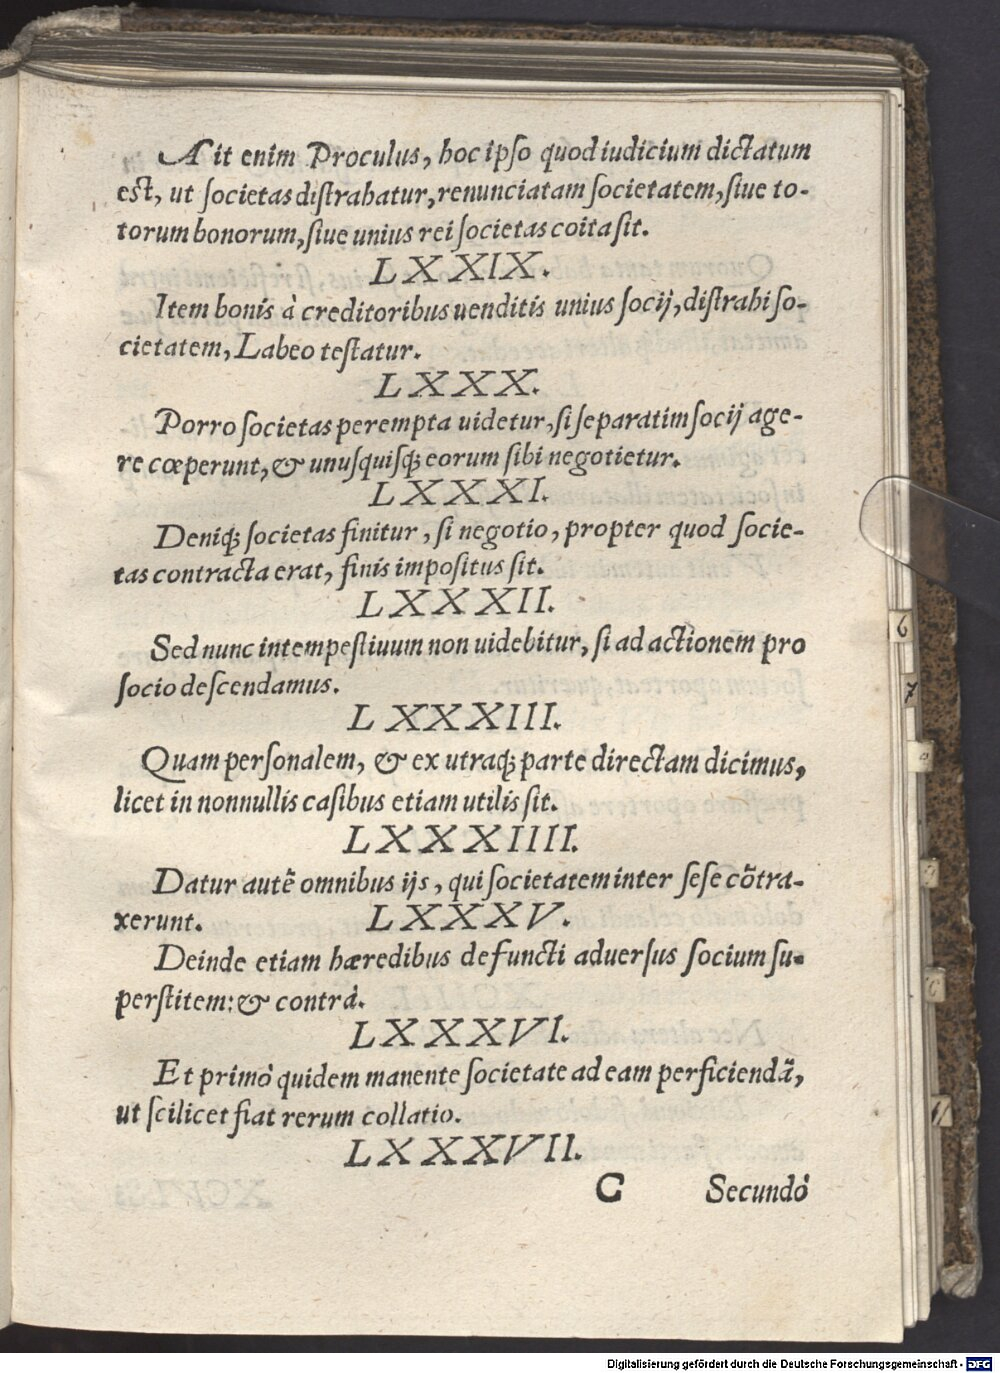 Ait enim Proculus, hoc ipſo quod iudicium dictatum
eſt, ut ſocietas diſtrahatur, renunciatam ſocietatem, ſiue to-
torum bonorum, ſiue unius rei ſocietas coita ſit.
LXXIX.
Item bonis à creditoribus uenditis unius ſocij, diſtrahi ſo-
cietatem, Labeo teſtatur.
LXXX.
Porro ſocietas perempta uidetur, ſi ſeparatim ſocij age-
re cœperunt, & unuſquiſq; eorum ſibi negotietur.
LXXXI.
Deniq; ſocietas finitur, ſi negotio, propter quod ſocie-
tas contracta erat, finis impoſitus ſit.
LXXXII.
Sed nunc intempeſtiuum non uidebitur, ſi ad actionem pro
ſocio deſcendamus.
LXXXIII.
Quam perſonalem, & ex utraq; parte directam dicimus,
licet in nonnullis caſibus etiam utilis ſit.
LXXXIIII.
Datur autẽ omnibus ijs, qui ſocietatem inter ſeſe cõtra-
xerunt. LXXXV.
Deinde etiam hæredibus defuncti aduerſus ſocium ſu-
perſtitem: & contrà.
LXXXVI.
Et primò quidem manente ſocietate ad eam perficiendã,
ut ſcilicet fiat rerum collatio.
LXXXVII.
C Secundò
6
7
Digitalisierung gefördert durch die Deutsche Forschungsgemeinschaft - DFG